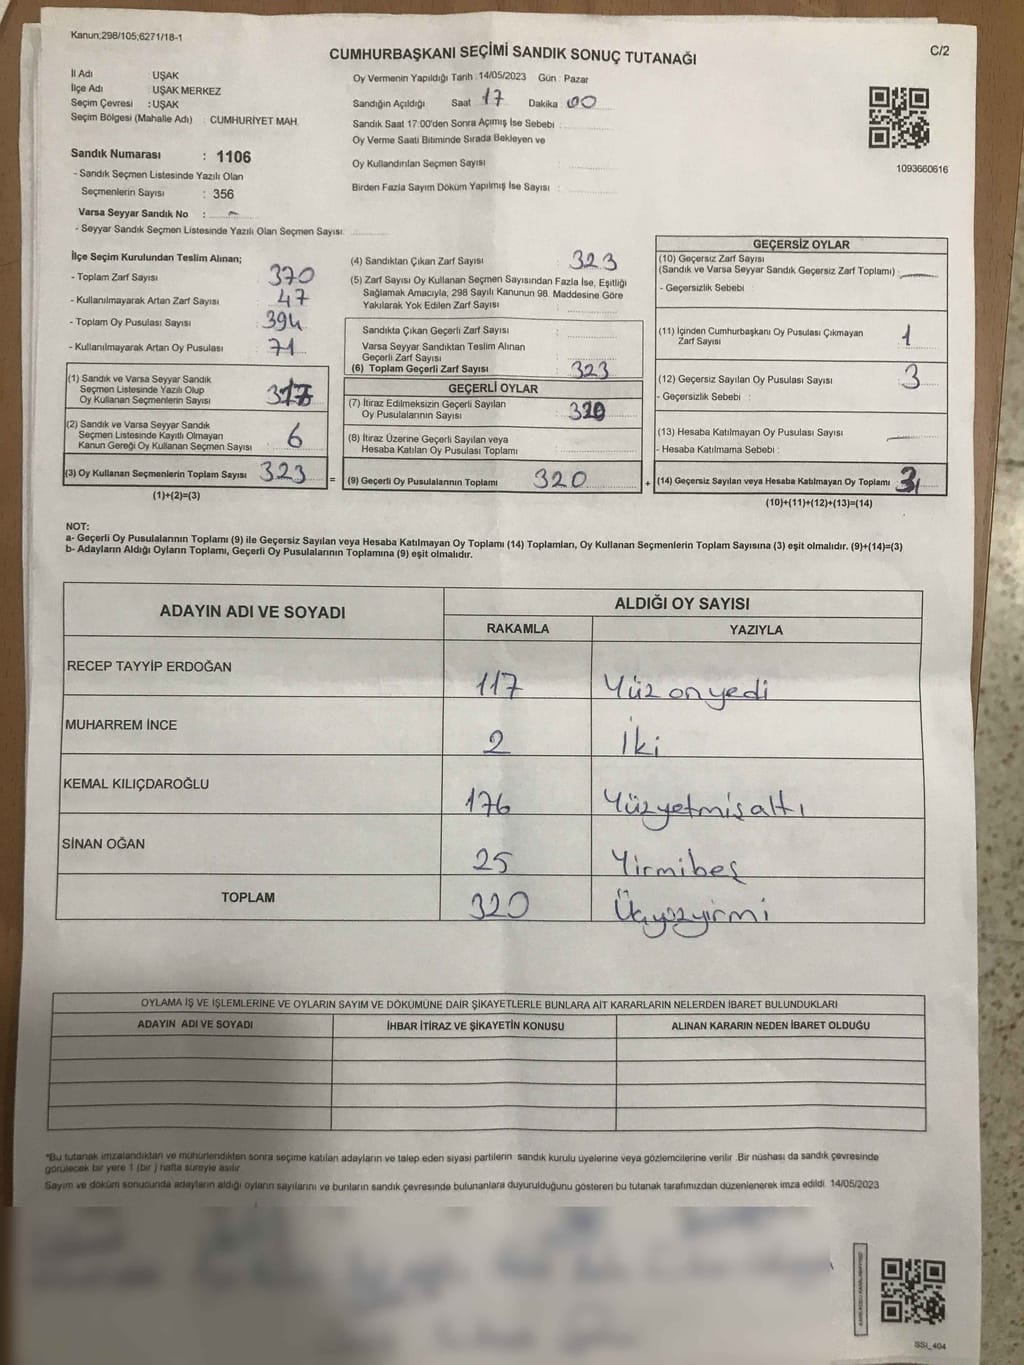 Kanun;298/105;6271/18-1
C/2
CUMHURBAŞKANI SEÇİMİ SANDIK SONUÇ TUTANAĞI
İl Adı : UŞAK
İlçe Adı : UŞAK MERKEZ
Seçim Çevresi : UŞAK
Seçim Bölgesi (Mahalle Adı) : CUMHURİYET MAH.
Sandık Numarası : 1106
- Sandık Seçmen Listesinde Yazılı Olan
Seçmenlerin Sayısı : 356
Varsa Seyyar Sandık No :
- Seyyar Sandık Seçmen Listesinde Yazılı Olan Seçmen Sayısı:
Oy Vermenin Yapıldığı Tarih : 14/05/2023 Gün : Pazar
Sandığın Açıldığı Saat 17 Dakika 00
Sandık Saat 17:00'den Sonra Açımış İse Sebebi :
Oy Verme Saati Bitiminde Sırada Bekleyen ve
Oy Kullandırılan Seçmen Sayısı :
Birden Fazla Sayım Döküm Yapılmış İse Sayısı :
1093660616
İlçe Seçim Kurulundan Teslim Alınan;
- Toplam Zarf Sayısı : 370
- Kullanılmayarak Artan Zarf Sayısı : 47
- Toplam Oy Pusulası Sayısı : 394
- Kullanılmayarak Artan Oy Pusulası : 71
(1) Sandık ve Varsa Seyyar Sandık
Seçmen Listesinde Yazılı Olup
Oy Kullanan Seçmenlerin Sayısı : 317
(2) Sandık ve Varsa Seyyar Sandık
Seçmen Listesinde Kayıtlı Olmayan
Kanun Gereği Oy Kullanan Seçmen Sayısı : 6
(3) Oy Kullanan Seçmenlerin Toplam Sayısı : 323
(1)+(2)=(3)
=
(4) Sandıktan Çıkan Zarf Sayısı : 323
(5) Zarf Sayısı Oy Kullanan Seçmen Sayısından Fazla İse, Eşitliği
Sağlamak Amacıyla, 298 Sayılı Kanunun 98. Maddesine Göre
Yakılarak Yok Edilen Zarf Sayısı :
Sandıkta Çıkan Geçerli Zarf Sayısı :
Varsa Seyyar Sandıktan Teslim Alınan
Geçerli Zarf Sayısı :
(6) Toplam Geçerli Zarf Sayısı : 323
GEÇERLİ OYLAR
(7) İtiraz Edilmeksizin Geçerli Sayılan
Oy Pusulalarının Sayısı : 320
(8) İtiraz Üzerine Geçerli Sayılan veya
Hesaba Katılan Oy Pusulası Toplamı :
(9) Geçerli Oy Pusulalarının Toplamı : 320
+
GEÇERSİZ OYLAR
(10) Geçersiz Zarf Sayısı
(Sandık ve Varsa Seyyar Sandık Geçersiz Zarf Toplamı) :
- Geçersizlik Sebebi :
(11) İçinden Cumhurbaşkanı Oy Pusulası Çıkmayan
Zarf Sayısı : 1
(12) Geçersiz Sayılan Oy Pusulası Sayısı : 3
- Geçersizlik Sebebi :
(13) Hesaba Katılmayan Oy Pusulası Sayısı :
- Hesaba Katılmama Sebebi :
(14) Geçersiz Sayılan veya Hesaba Katılmayan Oy Toplamı : 3
(10)+(11)+(12)+(13)=(14)
NOT:
a- Geçerli Oy Pusulalarının Toplamı (9) ile Geçersiz Sayılan veya Hesaba Katılmayan Oy Toplamı (14) Toplamları, Oy Kullanan Seçmenlerin Toplam Sayısına (3) eşit olmalıdır. (9)+(14)=(3)
b- Adayların Aldığı Oyların Toplamı, Geçerli Oy Pusulalarının Toplamına (9) eşit olmalıdır.
ADAYIN ADI VE SOYADI
ALDIĞI OY SAYISI
RAKAMLA YAZIYLA
RECEP TAYYİP ERDOĞAN 117 Yüz on yedi
MUHARREM İNCE 2 İki
KEMAL KILIÇDAROĞLU 176 Yüzyetmişaltı
SİNAN OĞAN 25 Yirmibeş
TOPLAM 320 Üçyüzyirmi
OYLAMA İŞ VE İŞLEMLERİNE VE OYLARIN SAYIM VE DÖKÜMÜNE DAİR ŞİKAYETLERLE BUNLARA AİT KARARLARIN NELERDEN İBARET BULUNDUKLARI
ADAYIN ADI VE SOYADI İHBAR İTİRAZ VE ŞİKAYETİN KONUSU ALINAN KARARIN NEDEN İBARET OLDUĞU
*Bu tutanak imzalandıktan ve mühürlendikten sonra seçime katılan adayların ve talep eden siyasi partilerin sandık kurulu üyelerine veya gözlemcilerine verilir .Bir nüshası da sandık çevresinde
görülecek bir yere 1 (bir ) hafta süreyle asılır.
Sayım ve döküm sonucunda adayların aldığı oyların sayılarını ve bunların sandık çevresinde bulunanlara duyurulduğunu gösteren bu tutanak tarafımızdan düzenlenerek imza edildi. 14/05/2023
SSİ_404